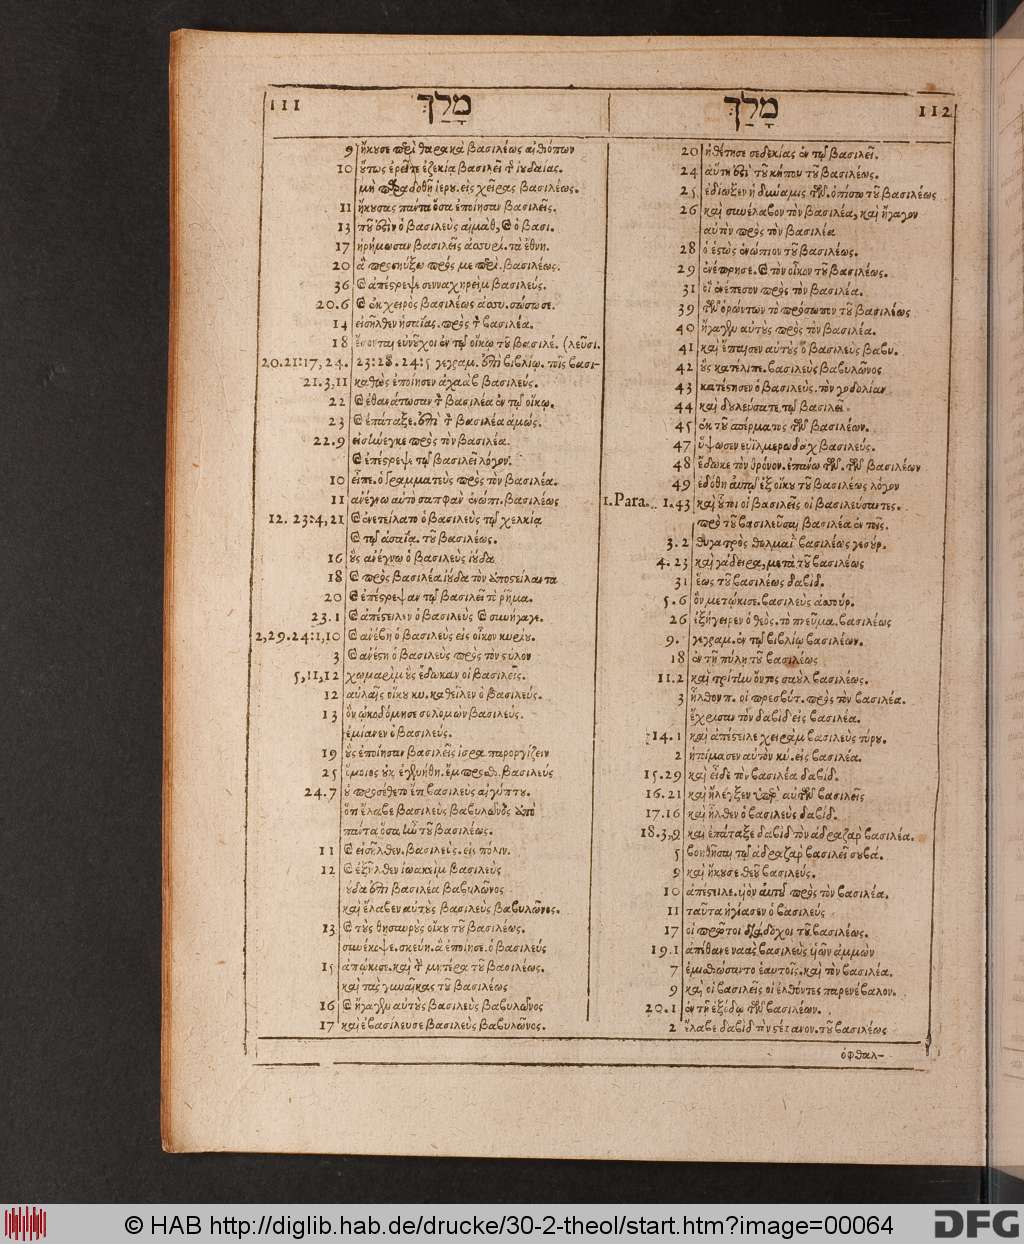 111 מָלַךְ
מָלַךְ 112
9 ἤκουσε περὶ θαρακὰ βασιλέως αἰθιόπων
10 οὕτως ἐρεῖτε ἐζεκίᾳ βασιλεῖ τ ἰουδαίας.
μὴ παραδοθῇ ἱερου. εἰς χεῖρας βασιλέως.
11 ἤκουσας πάντα ὅσα ἐποίησαν βασιλεῖς.
13 ποῦ ἐστὶν ὁ βασιλεὺς αἰμὰθ, καὶ ὁ βασι.
17 ἠρήμωσαν βασιλεῖς ἀσσυρί. τὰ ἔθνη.
20 ἃ προσηύξω πρός με περὶ. βασιλέως.
36 καὶ ἀπέστρεψε σενναχηρεὶμ βασιλεύς.
20.6 καὶ ἐκ χειρὸς βασιλέως ἀσσυ. σώσω σε.
14 εἰσῆλθεν ἡσαΐας. πρὸς τ βασιλέα.
18 ἔσονται εὐνοῦχοι ἐν τῷ οἴκῳ τοῦ βασιλέ. (λεῦσι.
20.21:17,24. 23:28. 24:5 γεγραμ. ἐπὶ βιβλίῳ. τοῖς βασι-
21.3,11 καθὼς ἐποίησεν ἀχαὰβ βασιλεύς.
22 καὶ ἐθανάτωσαν τ βασιλέα ἐν τῷ οἴκῳ.
23 καὶ ἐπάταξε. ἐπὶ τ βασιλέα ἀμώς.
22.9 εἰσήνεγκε πρὸς τὸν βασιλέα.
καὶ ἐπέστρεψε τῷ βασιλεῖ λόγον.
10 εἶπε. ὁ γραμματεὺς πρὸς τὸν βασιλέα.
11 ἀνέγνω αὐτὸ σαπφὰν ἐνώπι. βασιλέως
12. 23:4,21 καὶ ἐνετείλατο ὁ βασιλεὺς τῷ χελκίᾳ
καὶ τῷ ἀσαΐᾳ. τοῦ βασιλέως.
16 οὓς ἀνέγνω ὁ βασιλεὺς ἰούδα
18 καὶ πρὸς βασιλέα ἰούδα τὸν ἀποστείλαντα
20 καὶ ἐπέστρεψαν τῷ βασιλεῖ τὸ ῥῆμα.
23.1 καὶ ἀπέστειλεν ὁ βασιλεὺς καὶ συνήγαγε.
2,29.24:1,10 καὶ ἀνέβη ὁ βασιλεὺς εἰς οἶκον κυρίου.
3 καὶ ἀνέστη ὁ βασιλεὺς πρὸς τὸν στύλον
5,11,12 χωμαρὶμ οὓς ἔδωκαν οἱ βασιλεῖς.
12 αὐλαῖς οἴκου κυ. καθεῖλεν ὁ βασιλεύς.
13 ὃν ᾠκοδόμησε σολομὼν βασιλεύς.
ἐμίανεν ὁ βασιλεύς.
19 οὓς ἐποίησαν βασιλεῖς ἰσρα παροργίζειν
25 ὅμοιος οὐκ ἐγενήθη. ἔμπροσθ. βασιλεὺς
24.7 οὐ προσέθετο ἔτι βασιλεὺς αἰγύπτου.
ὅτι ἔλαβε βασιλεὺς βαβυλῶνος ἀπὸ
πάντα ὅσα ἦν τοῦ βασιλέως.
11 καὶ εἰσῆλθεν. βασιλεύς. εἰς πόλιν.
12 καὶ ἐξῆλθεν ἰωακεὶμ βασιλεὺς
ἰούδα ἐπὶ βασιλέα βαβυλῶνος
καὶ ἔλαβεν αὐτοὺς βασιλεὺς βαβυλῶνος.
13 καὶ τοὺς θησαυροὺς οἴκου τοῦ βασιλέως.
συνέκοψε. σκεύη. ἃ ἐποίησε. ὁ βασιλεύς
15 ἀπῴκισε. καὶ τ μητέρα τοῦ βασιλέως.
καὶ τὰς γυναῖκας τοῦ βασιλέως
16 καὶ ἤγαγεν αὐτοὺς βασιλεὺς βαβυλῶνος
17 καὶ ἐβασίλευσε βασιλεὺς βαβυλῶνος.
20 ἠθέτησε σεδεκίας ἐν τῷ βασιλεῖ.
24 αὕτη ἐστὶ τοῦ κήπου τοῦ βασιλέως.
25 ἐδίωξεν ἡ δύναμις τῶν. ὀπίσω τοῦ βασιλέως
26 καὶ συνέλαβον τὸν βασιλέα, καὶ ἤγαγον
αὐτὸν πρὸς τὸν βασιλέα
28 ὁ ἑστὼς ἐνώπιον τοῦ βασιλέως.
29 ἐνέπρησε. καὶ τὸν οἶκον τοῦ βασιλέως.
31 οἳ ἐνέπεσον πρὸς τὸν βασιλέα.
39 τῶν ὁρώντων τὸ πρόσωπον τοῦ βασιλέως
40 ἤγαγεν αὐτοὺς πρὸς τὸν βασιλέα.
41 καὶ ἔπαισεν αὐτοὺς ὁ βασιλεὺς βαβυ.
42 οὓς κατέλιπε. βασιλεὺς βαβυλῶνος
43 κατέστησεν ὁ βασιλεὺς. τὸν γοδολίαν
44 καὶ δουλεύσατε τῷ βασιλεῖ
45 ἐκ τοῦ σπέρματος τῶν βασιλέων.
47 ὕψωσεν εὐϊλμερωδὰχ βασιλεύς.
48 ἔδωκε τὸν θρόνον. ἐπάνω τῶν. τῶν βασιλέων
49 ἐδόθη αὐτῷ ἐξ οἴκου τοῦ βασιλέως λόγον
1.Para. 1.43 καὶ οὗτοι οἱ βασιλεῖς οἱ βασιλεύσαντες.
πρὸ τοῦ βασιλεῦσαι βασιλέα ἐν τοῖς.
3.2 θυγατρὸς θολμαῒ βασιλέως γεσούρ.
4.23 καὶ γάδειρα, μετὰ τοῦ βασιλέως
31 ἕως τοῦ βασιλέως δαβίδ.
5.6 ὃν μετῴκισε. βασιλεὺς ἀσσούρ.
26 ἐξήγειρεν ὁ θεός. τὸ πνεῦμα. βασιλέως
9. γεγραμ. ἐν τῷ βιβλίῳ βασιλέων.
18 ἐν τῇ πύλῃ τοῦ βασιλέως
11.2 καὶ τρίτην ὄντος σαοὺλ βασιλέως.
3 ἦλθον π. οἱ πρεσβύτ. πρὸς τὸν βασιλέα.
ἔχρισαν τὸν δαβὶδ εἰς βασιλέα.
14.1 καὶ ἀπέστειλε χειρὰμ βασιλεὺς τύρου.
2 ἡτοίμασεν αὐτὸν κυ. εἰς βασιλέα.
15.29 καὶ εἶδε τὸν βασιλέα δαβίδ.
16.21 καὶ ἤλεγξεν ὑπὲρ αὐτῶν βασιλεῖς
17.16 καὶ ἦλθεν ὁ βασιλεὺς δαβίδ.
18.3,9 καὶ ἐπάταξε δαβὶδ τὸν ἀδραζὰρ βασιλέα.
5 βοηθῆσαι τῷ ἀδραζὰρ βασιλεῖ σουβά.
9 καὶ ἤκουσε θεοῦ βασιλεύς.
10 ἀπέστειλε. υἱὸν αὐτοῦ πρὸς τὸν βασιλέα.
11 ταῦτα ἡγίασεν ὁ βασιλεύς
17 οἱ πρῶτοι διάδοχοι τοῦ βασιλέως.
19.1 ἀπέθανε ναὰς βασιλεὺς υἱῶν ἀμμὼν
7 ἐμισθώσαντο ἑαυτοῖς. καὶ τὸν βασιλέα.
9 καὶ οἱ βασιλεῖς οἱ ἐλθόντες παρενέβαλον.
20.1 ἐν τῇ ἐξόδῳ τῶν βασιλέων.
2 ἔλαβε δαβὶδ τὸν στέφανον. τοῦ βασιλέως
ὀφθαλ-
© HAB http://diglib.hab.de/drucke/30-2-theol/start.htm?image=00064
DFG